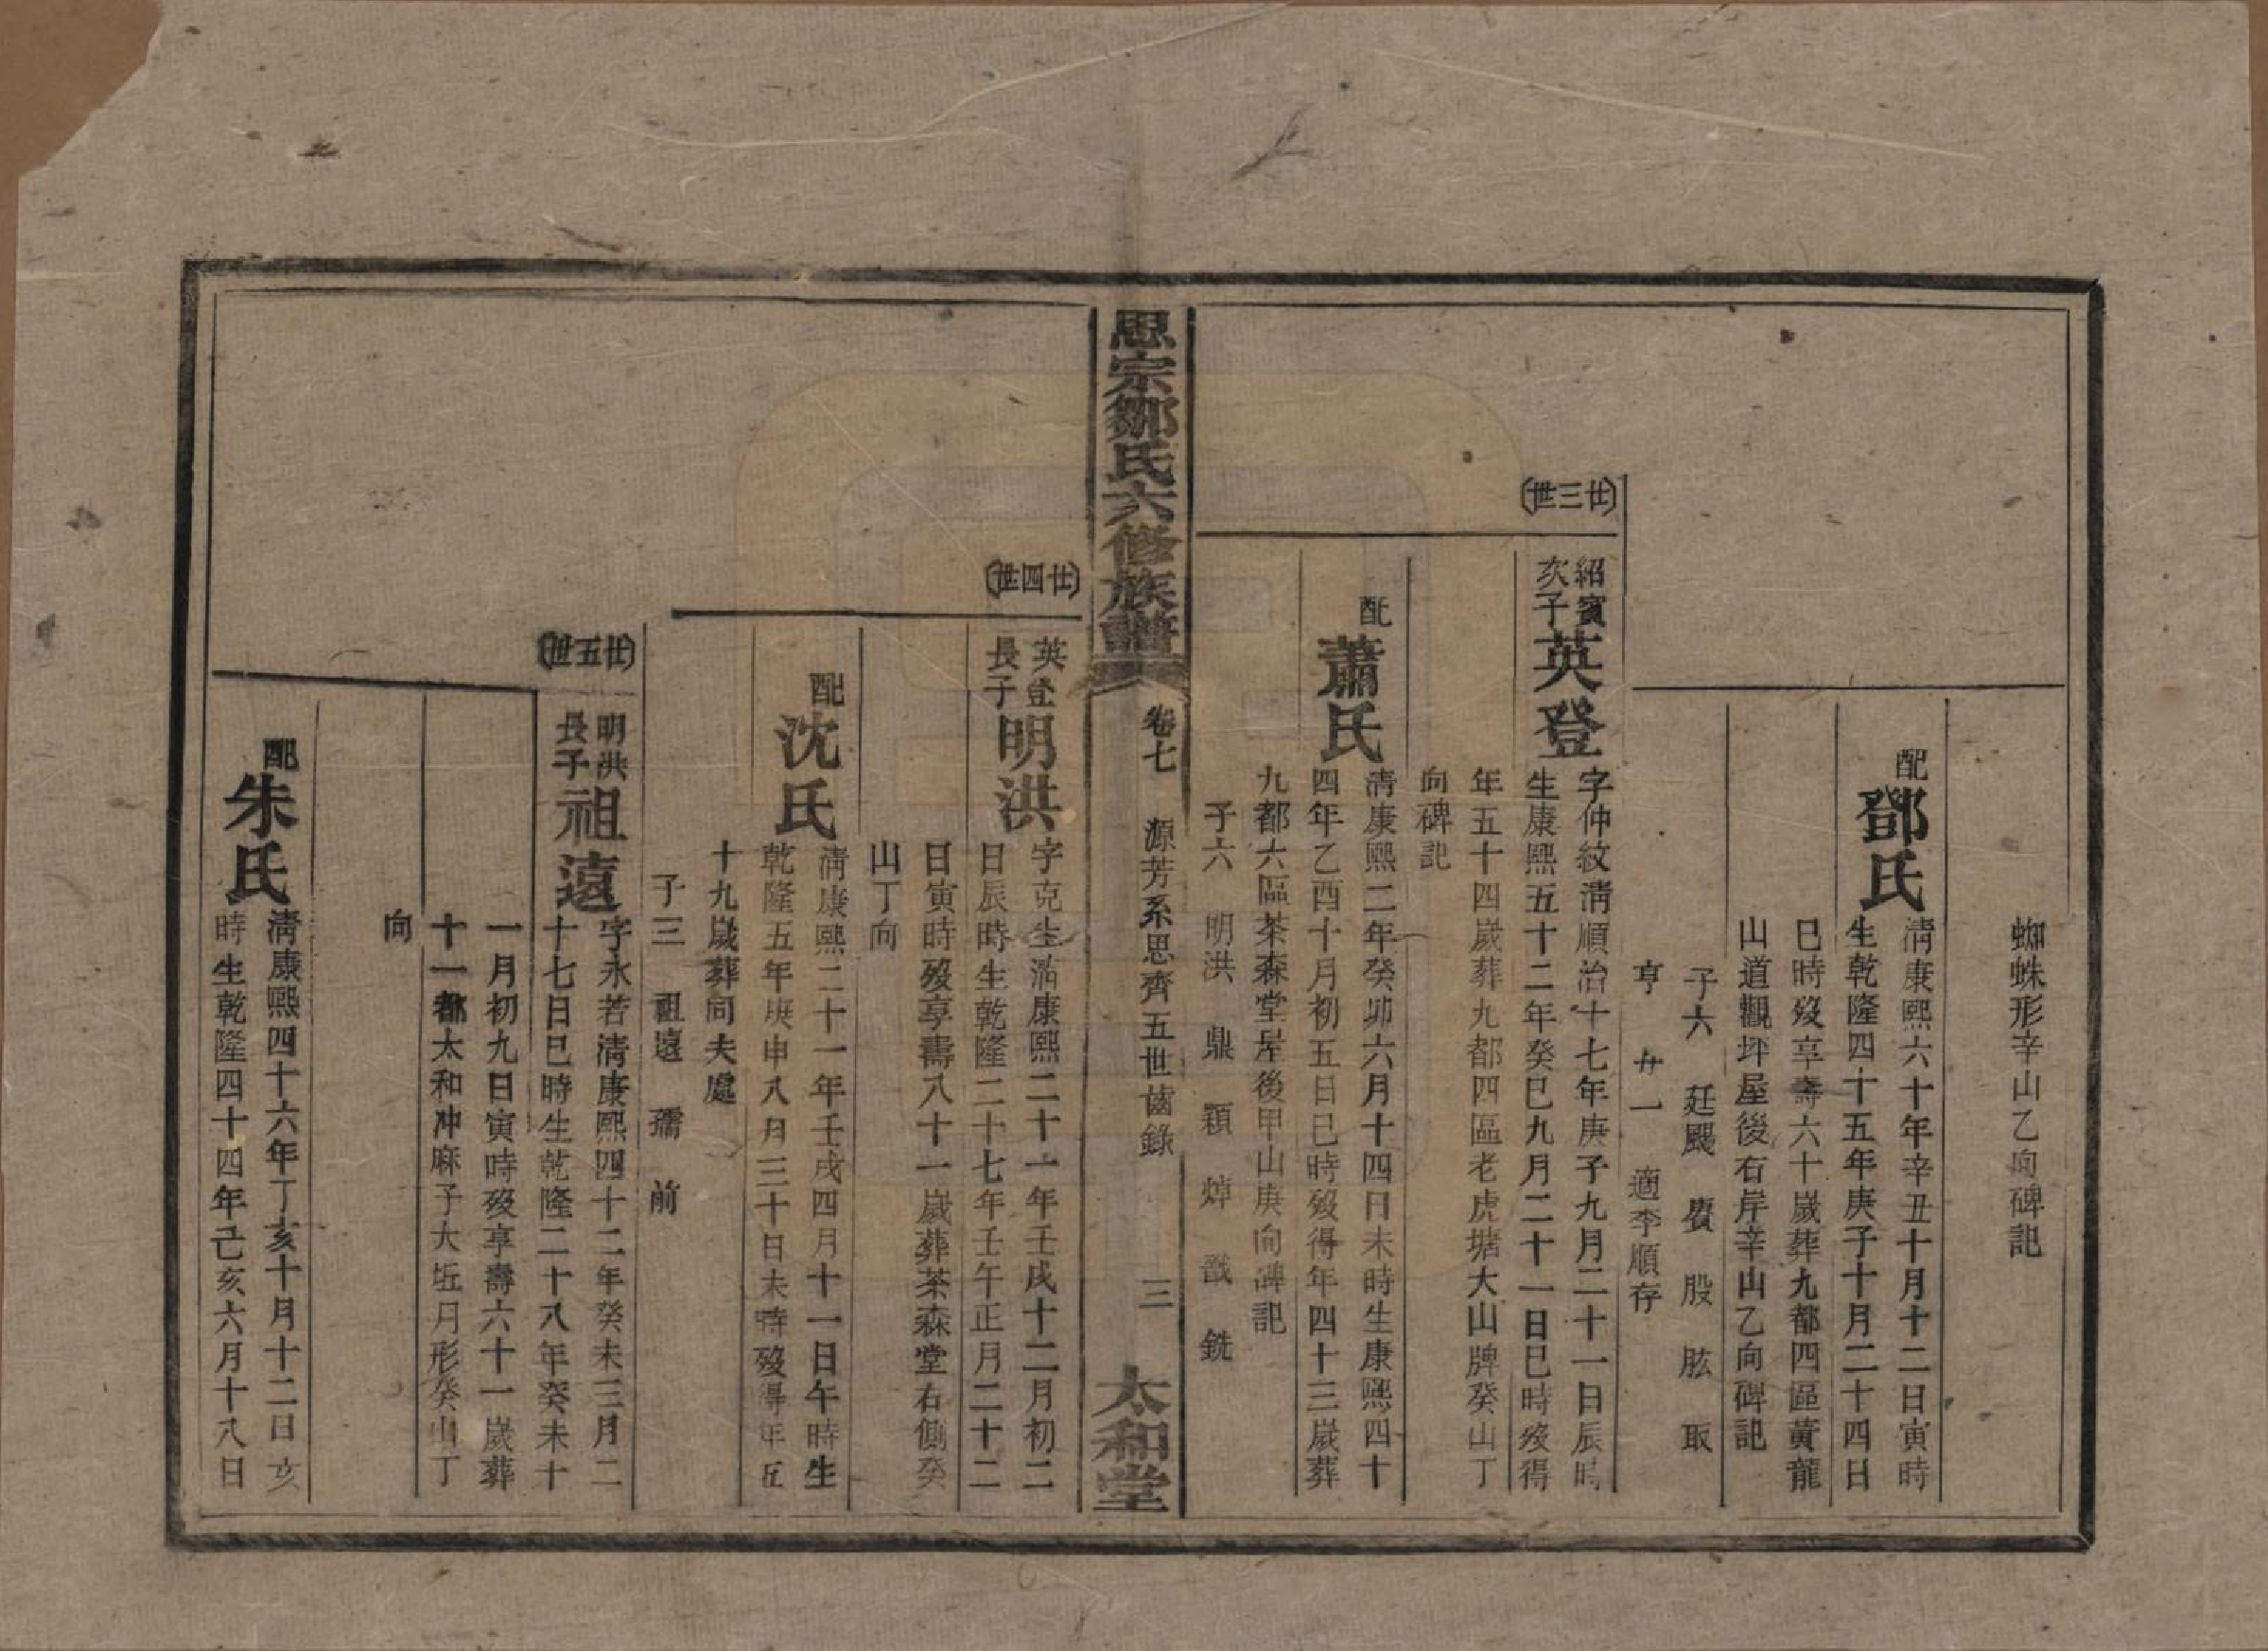 蜘蛛形辛山乙向碑記
配
鄧氏
清康熙六十年辛丑十月十二日寅時
生乾隆四十五年庚子十月二十四日
巳時歿享壽六十歲葬九都四區黃龍
山道觀坪屋後右岸辛山乙向碑記
子六 廷颺 賡 股 肱 取
亨 女一 適李順存
廿三世
紹賓
次子
英登
字仲紋清順治十七年庚子九月二十一日辰時
生康熙五十二年癸巳九月二十一日巳時歿得
年五十四歲葬九都四區老虎塘大山牌癸山丁
向碑記
配
蕭氏
清康熙二年癸卯六月十四日未時生康熙四十
四年乙酉十月初五日巳時歿得年四十三歲葬
九都六區茶森堂屋後甲山庚向碑記
子六 明洪 鼎 穎 焯 戩 銑
思宗鄒氏六修族譜
卷七 源芳系思齊五世齒錄
三
太和堂
廿四世
英登
長子
明洪
字克生清康熙二十一年壬戌十二月初二
日辰時生乾隆二十七年壬午正月二十二
日寅時歿享壽八十一歲葬茶森堂右側癸
山丁向
配
沈氏
清康熙二十一年壬戌四月十一日午時生
乾隆五年庚申八月三十日未時歿得年五
十九歲葬同夫處
子三 祖遠 孺 前
廿五世
明洪
長子
祖遠
字永若清康熙四十二年癸未三月二
十七日巳時生乾隆二十八年癸未十
一月初九日寅時歿享壽六十一歲葬
十一都太和冲麻子大坵月形癸山丁
向
配
朱氏
清康熙四十六年丁亥十月十二日亥
時生乾隆四十四年己亥六月十八日